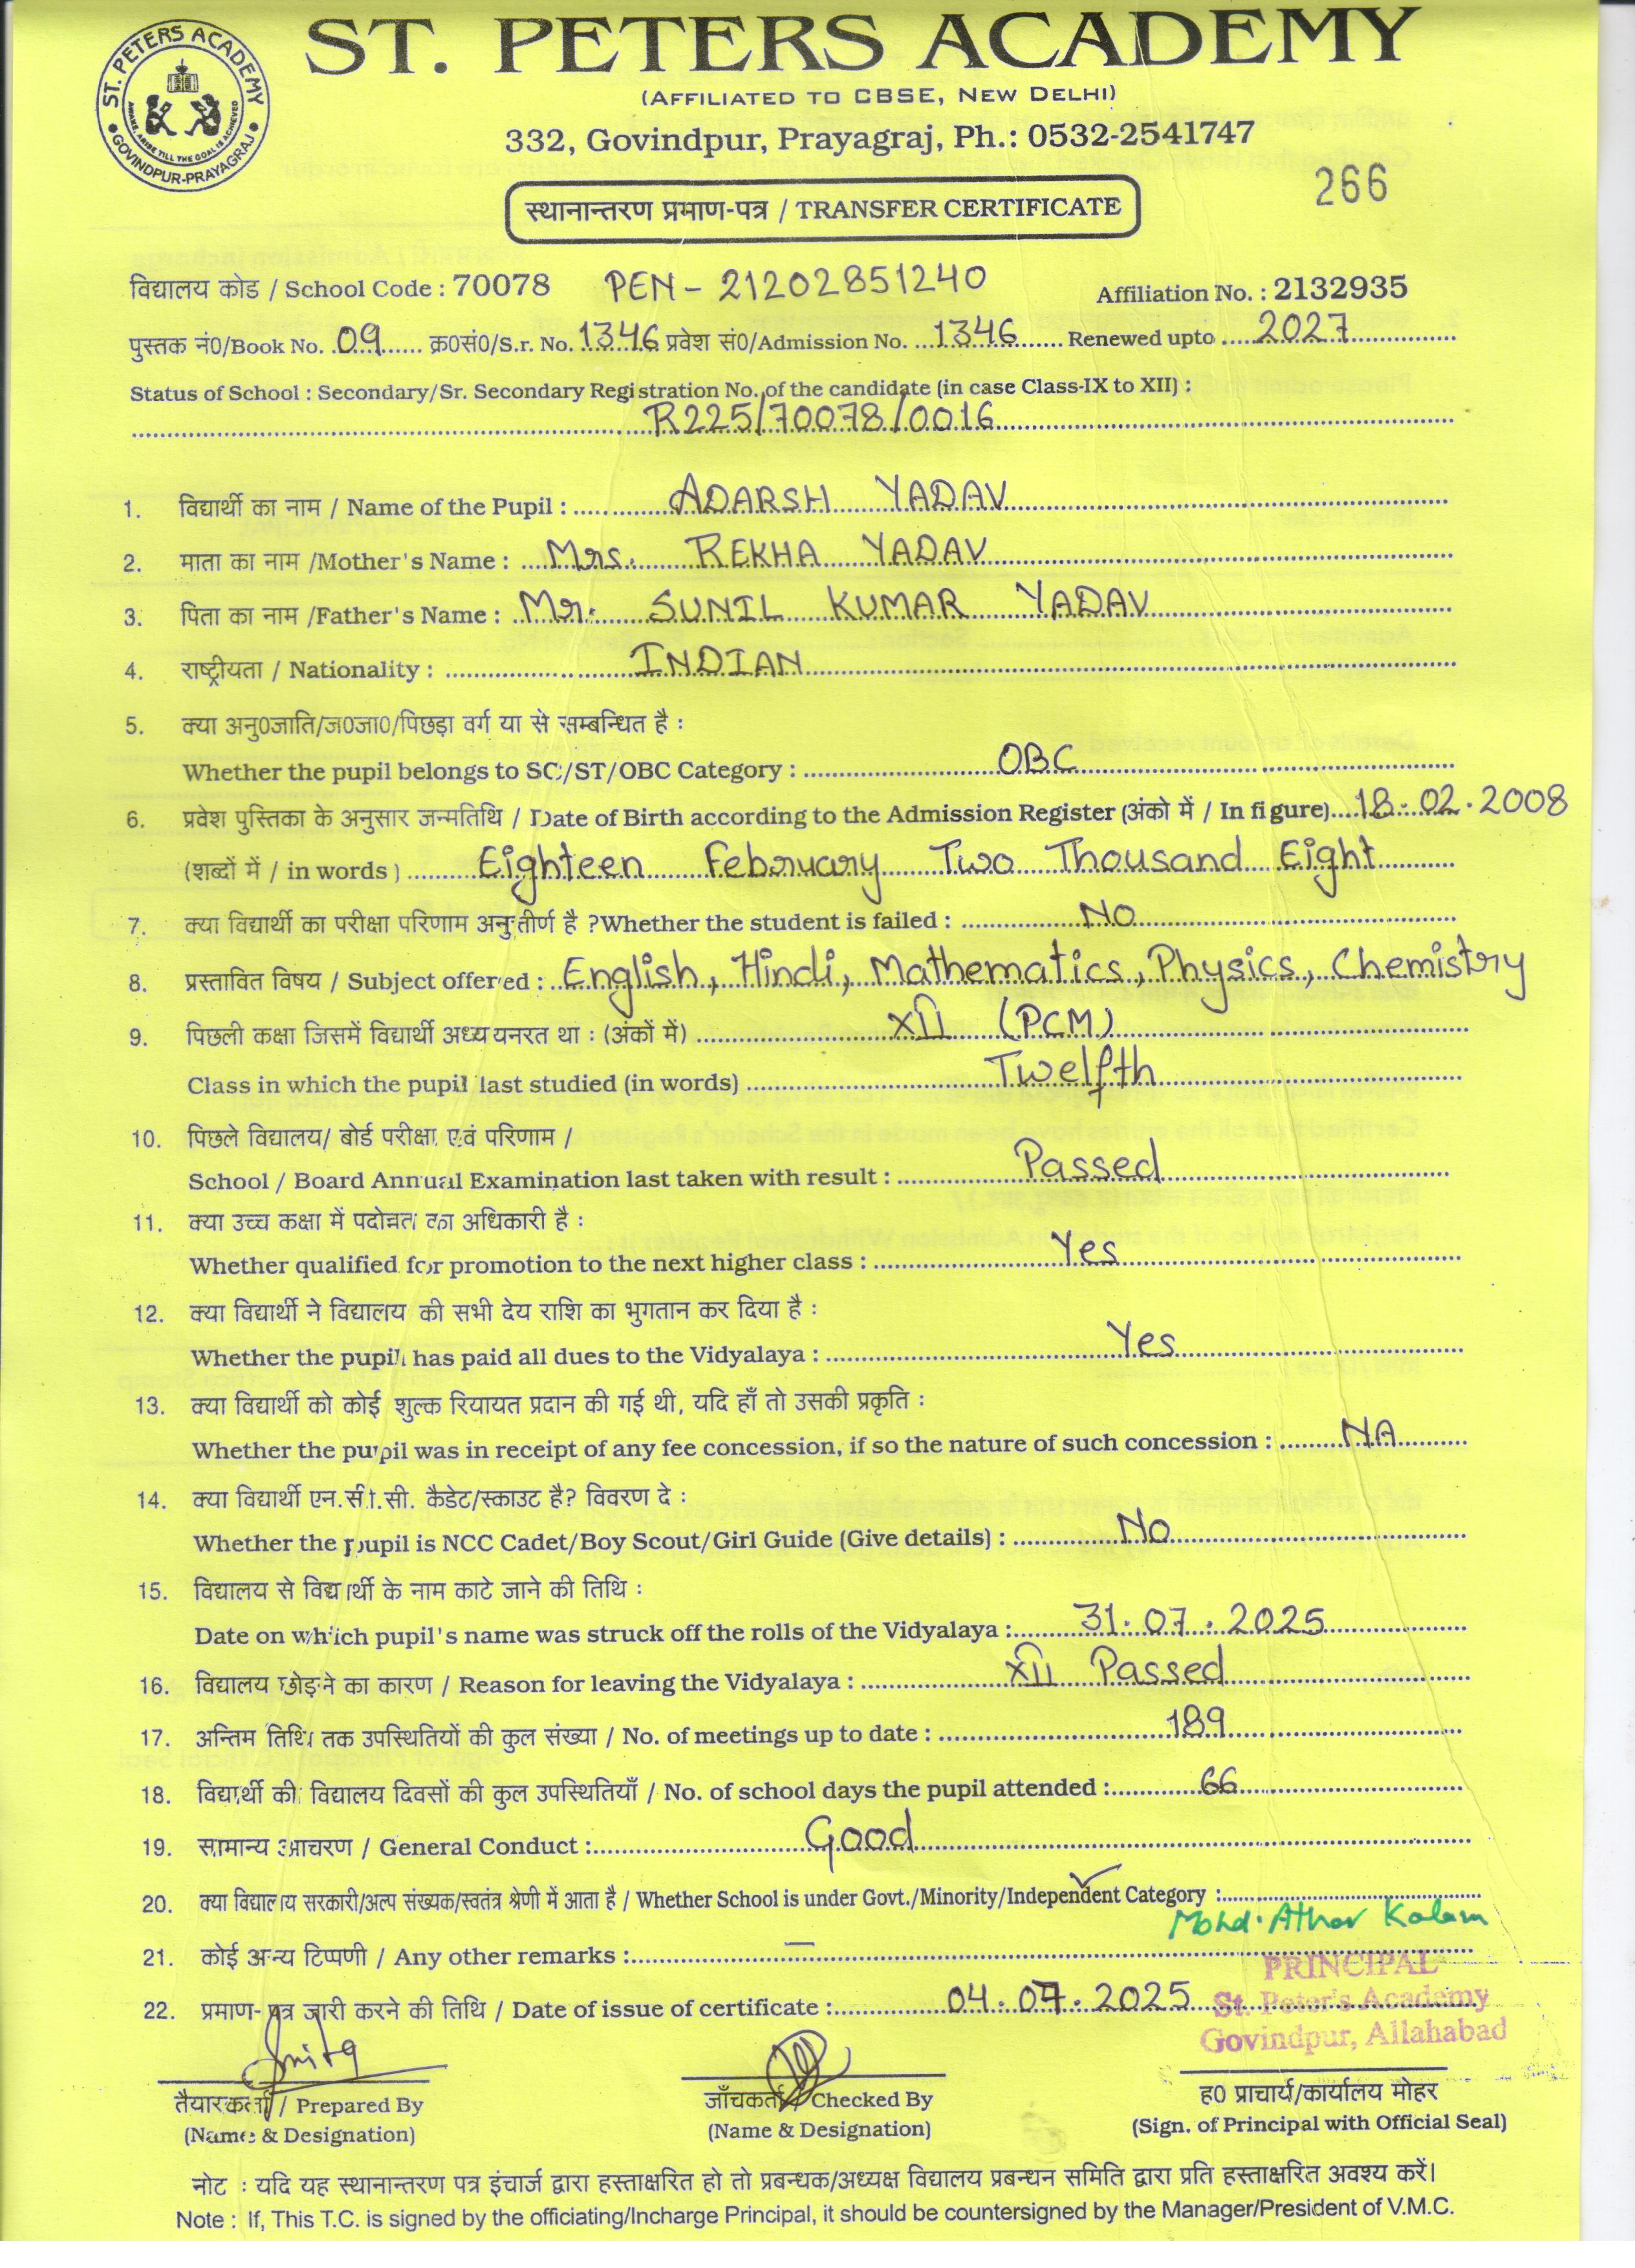 ST. PETERS ACADEMY
ST. PETERS ACADEMY
AWAKE, ARISE TILL THE GOAL IS ACHIEVED
GOVINDPUR-PRAYAGRAJ
(AFFILIATED TO CBSE, NEW DELHI)
332, Govindpur, Prayagraj, Ph.: 0532-2541747
266
स्थानान्तरण प्रमाण-पत्र / TRANSFER CERTIFICATE
विद्यालय कोड / School Code : 70078 PEN - 21202851240 Affiliation No. : 2132935
पुस्तक नं0/Book No. 09 क्र0सं0/S.r. No. 1346 प्रवेश सं0/Admission No. 1346 Renewed upto 2027
Status of School : Secondary/Sr. Secondary Registration No. of the candidate (in case Class-IX to XII) :
R225/70078/0016
1. विद्यार्थी का नाम / Name of the Pupil : ADARSH YADAV
2. माता का नाम /Mother's Name : Mrs. REKHA YADAV
3. पिता का नाम /Father's Name : Mr. SUNIL KUMAR YADAV
4. राष्ट्रीयता / Nationality : INDIAN
5. क्या अनु0जाति/ज0जा0/पिछड़ा वर्ग या से सम्बन्धित है :
Whether the pupil belongs to SC/ST/OBC Category : OBC
6. प्रवेश पुस्तिका के अनुसार जन्मतिथि / Date of Birth according to the Admission Register (अंको में / In figure) 18.02.2008
(शब्दों में / in words ) Eighteen February Two Thousand Eight
7. क्या विद्यार्थी का परीक्षा परिणाम अनुत्तीर्ण है ?Whether the student is failed : NO
8. प्रस्तावित विषय / Subject offered : English, Hindi, Mathematics, Physics, Chemistry
9. पिछली कक्षा जिसमें विद्यार्थी अध्ययनरत था : (अंकों में) XII (PCM)
Class in which the pupil last studied (in words) Twelfth
10. पिछले विद्यालय/ बोर्ड परीक्षा एवं परिणाम /
School / Board Annual Examination last taken with result : Passed
11. क्या उच्च कक्षा में पदोन्नत का अधिकारी है :
Whether qualified for promotion to the next higher class : Yes
12. क्या विद्यार्थी ने विद्यालय की सभी देय राशि का भुगतान कर दिया है :
Whether the pupil has paid all dues to the Vidyalaya : Yes
13. क्या विद्यार्थी को कोई शुल्क रियायत प्रदान की गई थी, यदि हाँ तो उसकी प्रकृति :
Whether the pupil was in receipt of any fee concession, if so the nature of such concession : NA
14. क्या विद्यार्थी एन.सी.सी. कैडेट/स्काउट है? विवरण दे :
Whether the pupil is NCC Cadet/Boy Scout/Girl Guide (Give details) : No
15. विद्यालय से विद्यार्थी के नाम काटे जाने की तिथि :
Date on which pupil's name was struck off the rolls of the Vidyalaya : 31.07.2025
16. विद्यालय छोड़ने का कारण / Reason for leaving the Vidyalaya : XII Passed
17. अन्तिम तिथि तक उपस्थितियों की कुल संख्या / No. of meetings up to date : 189
18. विद्यार्थी की विद्यालय दिवसों की कुल उपस्थितियाँ / No. of school days the pupil attended : 66
19. सामान्य आचरण / General Conduct : Good
20. क्या विद्यालय सरकारी/अल्प संख्यक/स्वतंत्र श्रेणी में आता है / Whether School is under Govt./Minority/Independent Category : ✓
Mohd. Athar Kalam
21. कोई अन्य टिप्पणी / Any other remarks : —
PRINCIPAL
22. प्रमाण-पत्र जारी करने की तिथि / Date of issue of certificate : 04.07.2025
St. Peter's Academy
Govindpur, Allahabad
तैयारकर्ता / Prepared By जाँचकर्ता / Checked By ह0 प्राचार्य/कार्यालय मोहर
(Name & Designation) (Name & Designation) (Sign. of Principal with Official Seal)
नोट : यदि यह स्थानान्तरण पत्र इंचार्ज द्वारा हस्ताक्षरित हो तो प्रबन्धक/अध्यक्ष विद्यालय प्रबन्धन समिति द्वारा प्रति हस्ताक्षरित अवश्य करें।
Note : If, This T.C. is signed by the officiating/Incharge Principal, it should be countersigned by the Manager/President of V.M.C.